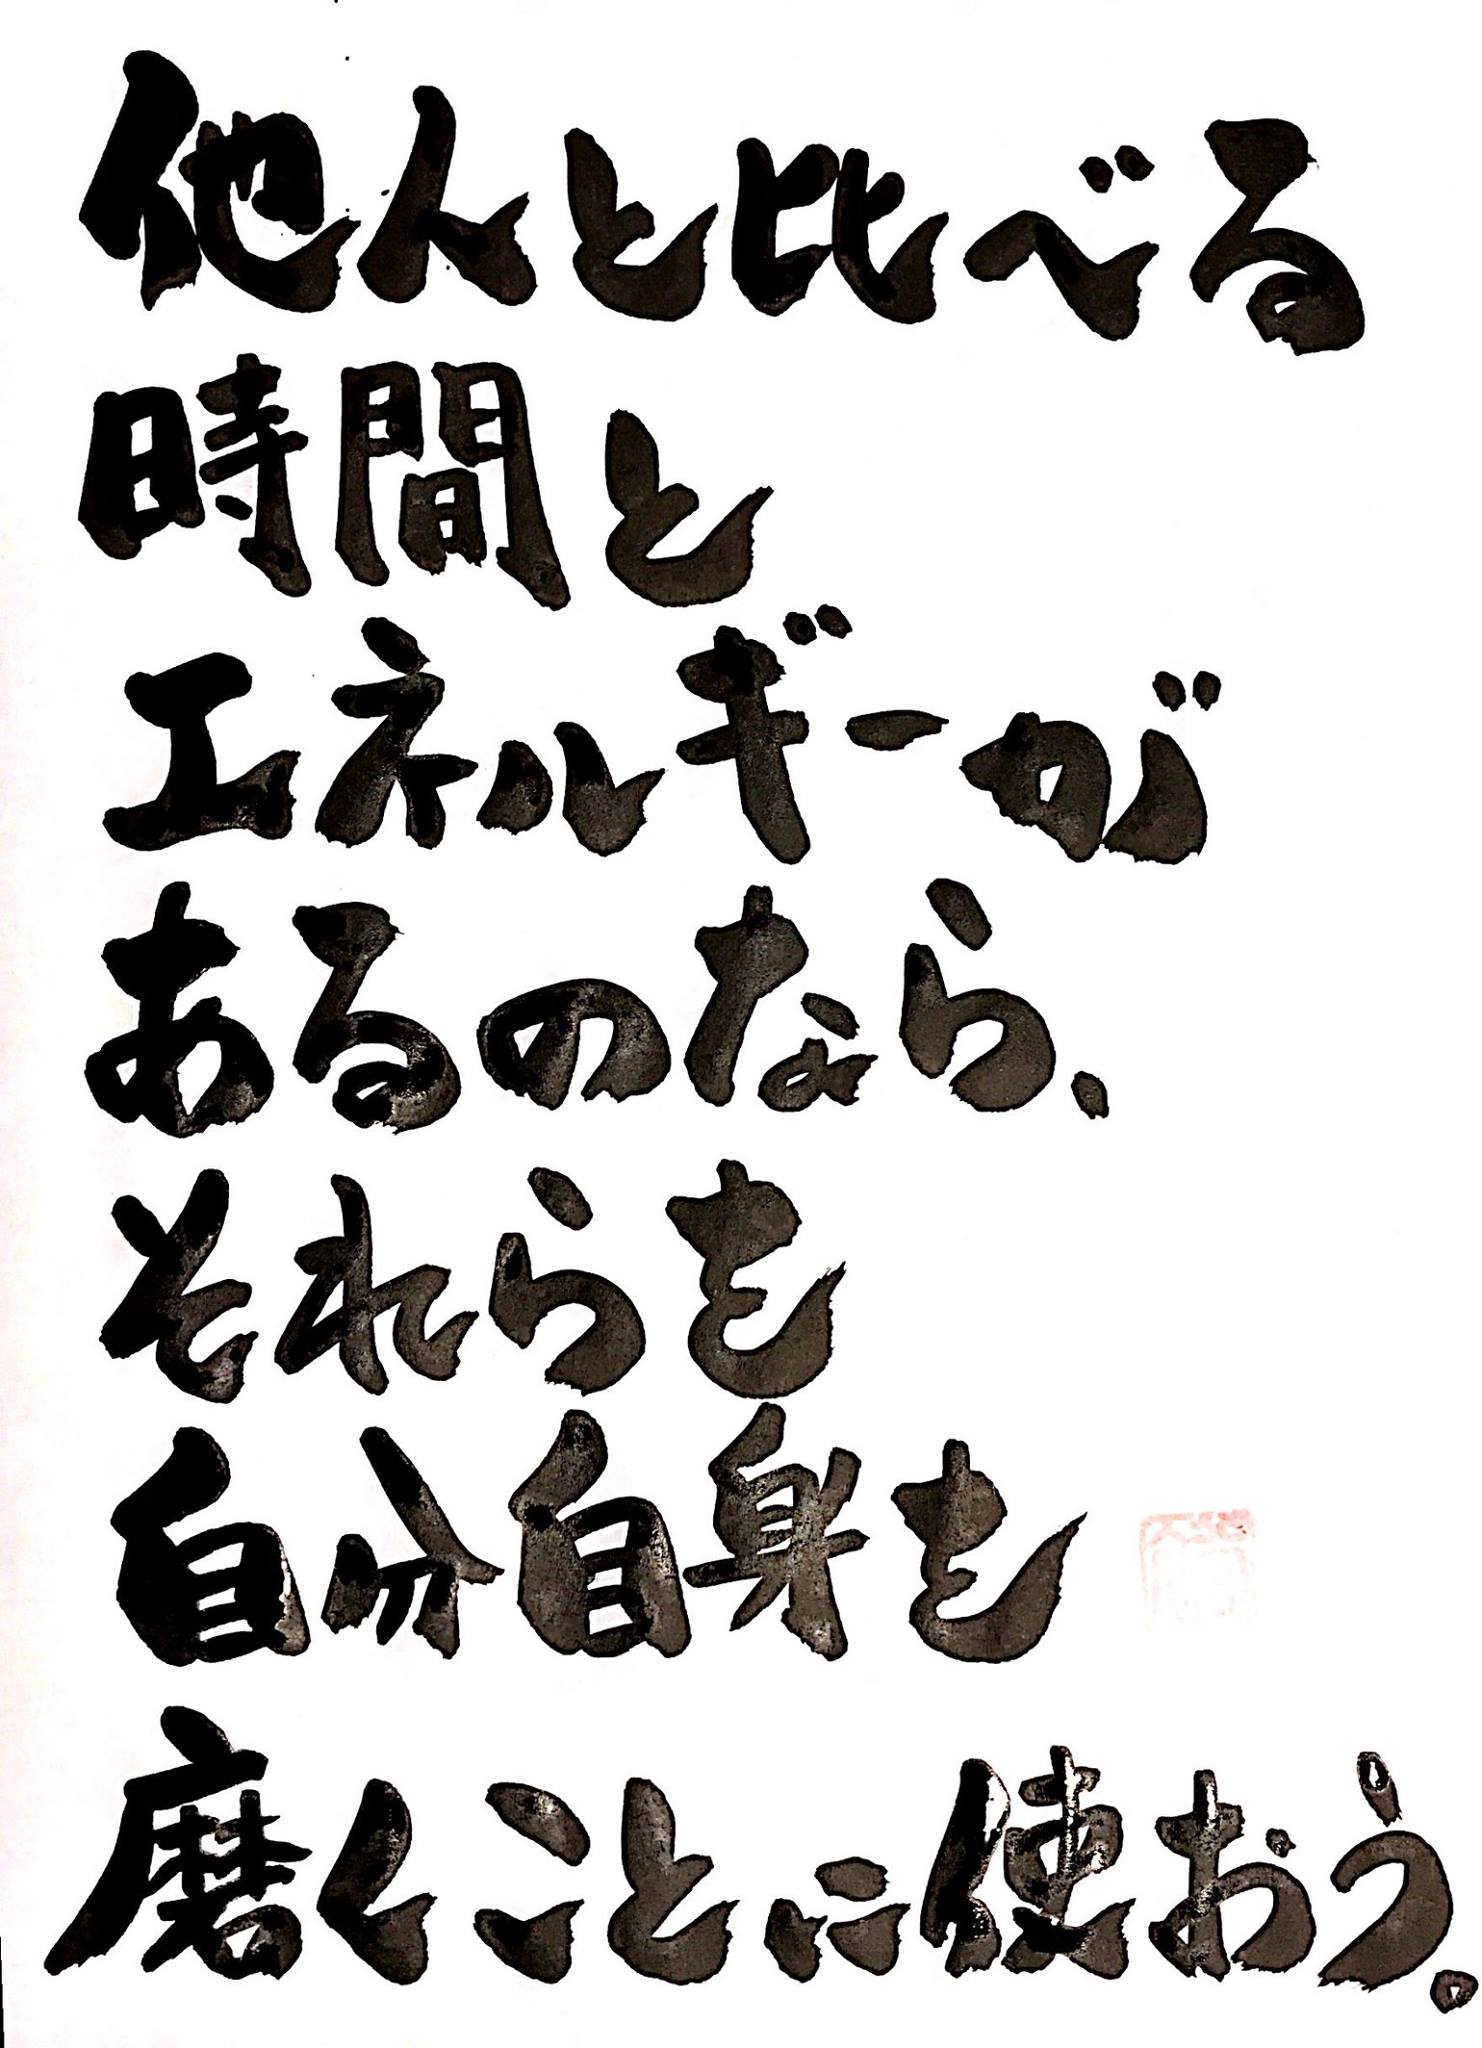 他人と比べる
時間と
エネルギーが
あるのなら、
それらを
自分自身を
磨くことに使おう。